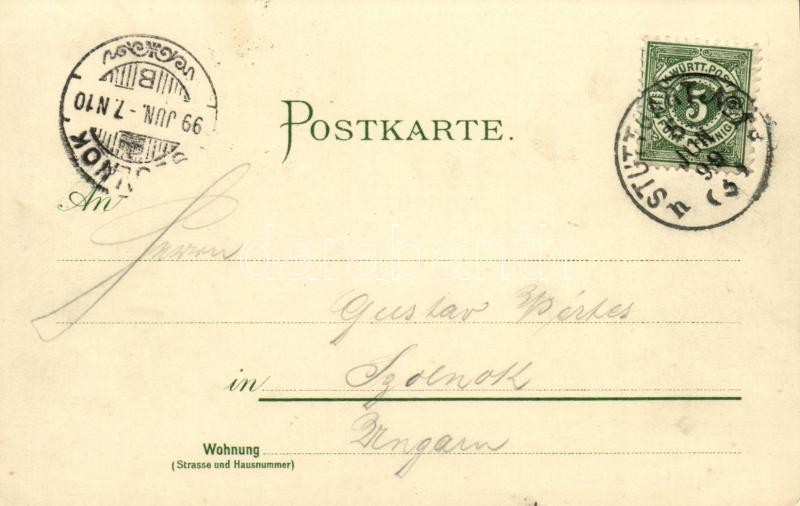 SZOLNOK
99 JUN. - 7. N10
B
POSTKARTE.
K. WÜRTT. POST
5
FÜNF PFENNIG
STUTTGART
JUN
99
An
Herrn
Gustav Pértes
in Szolnok
Ungarn
Wohnung
(Strasse und Hausnummer)
darabanth